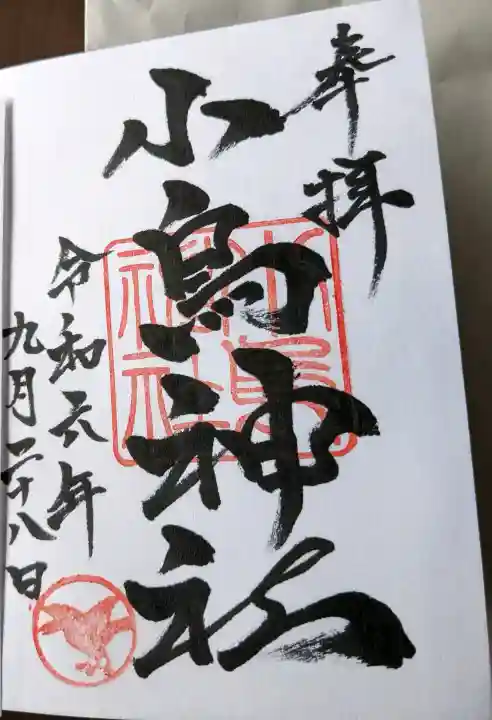 奉拝
小烏神社
令和元年
九月二十八日
小烏神社